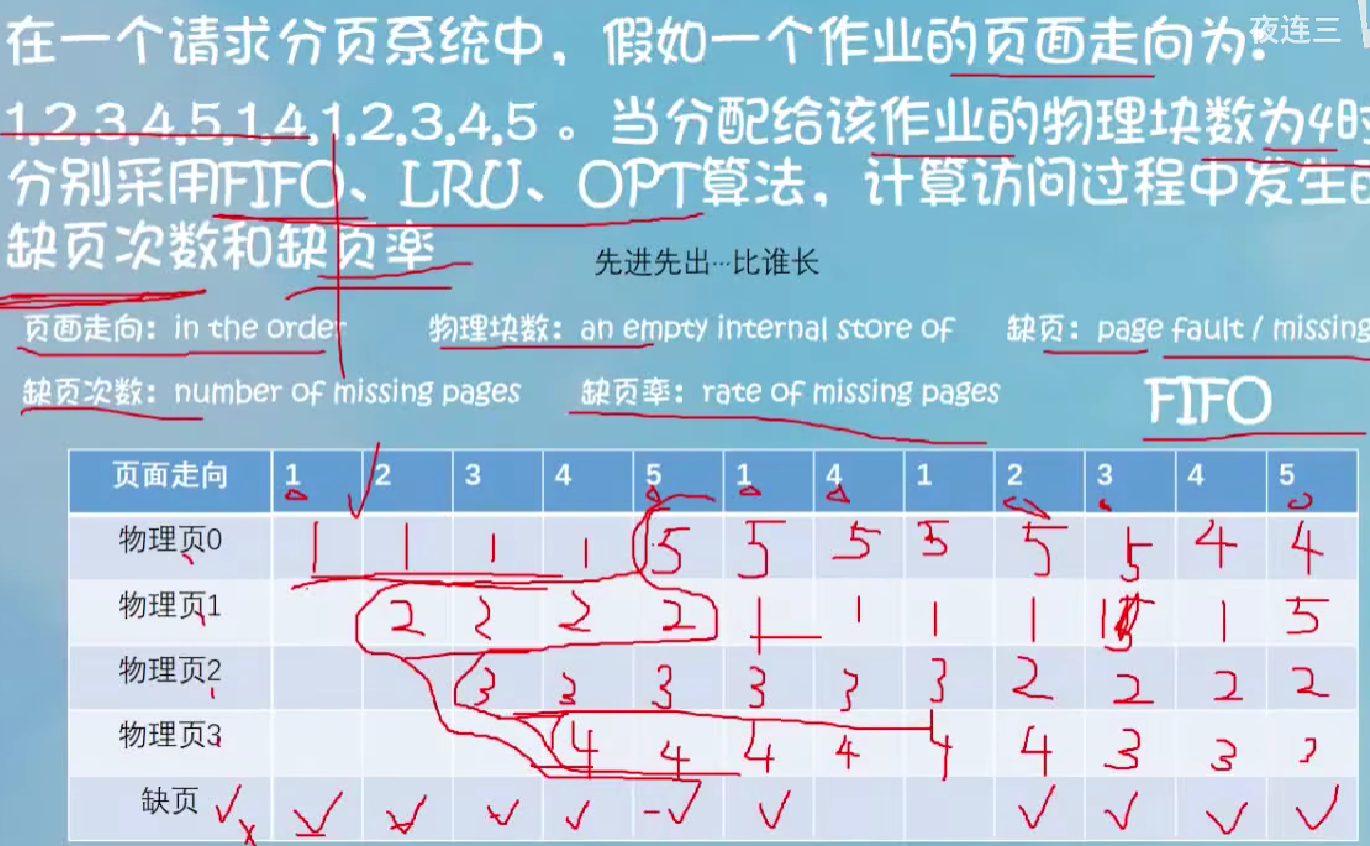 夜连三
在一个请求分页系统中，假如一个作业的页面走向为：
1,2,3,4,5,1,4,1,2,3,4,5 。当分配给该作业的物理块数为4时
分别采用FIFO、LRU、OPT算法，计算访问过程中发生的
缺页次数和缺页率
先进先出…比谁长
页面走向：in the order 物理块数：an empty internal store of 缺页：page fault / missing
缺页次数：number of missing pages 缺页率：rate of missing pages FIFO
页面走向 1 2 3 4 5 1 4 1 2 3 4 5
物理页0 1 1 1 1 5 5 5 5 5 5 4 4
物理页1 2 2 2 2 1 1 1 1 1 5
物理页2 3 3 3 3 3 3 2 2 2 2
物理页3 4 4 4 4 4 4 3 3
缺页 √ x √ √ √ √ √ √ √ √ √ √